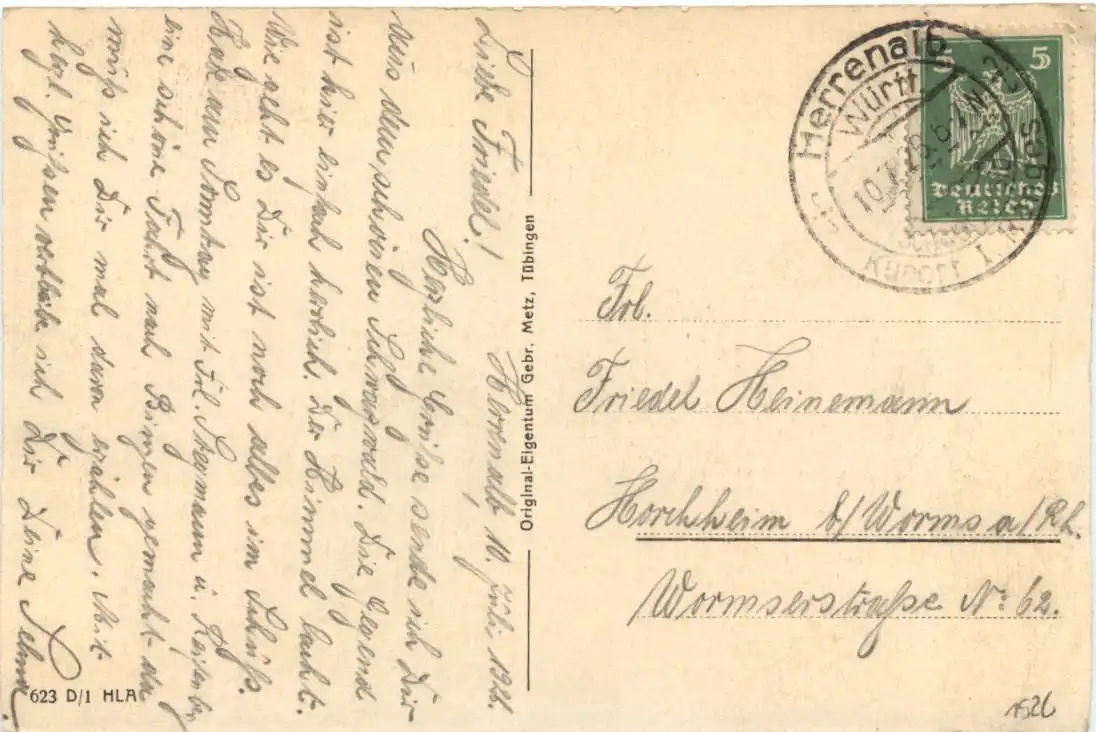 Herrenalb, 10. Juli 1926.
Liebe Friedel!
Herzliche Grüße sende ich Dir
aus dem schönen Schwarzwald. Die Gegend
ist hier einfach herrlich. Der Himmel lacht.
Wie geht es Dir ist noch alles im Schuß.
am Sonntag mit Frl. u.
eine schöne Fahrt nach Bingen gemacht da
muß ich Dir mal davon erzählen. Mit
herzl. Grüßen verbleibe ich Dir Deine
623 D/1 HLA
Original-Eigentum Gebr. Metz, Tübingen
Herrenalb
Württ.
10.7.26. 6-7 N.
Kurort I.
5 5
Deutsches
Reich
Frl.
Friedel Heinemann
Horchheim b/Worms a/Rh.
Wormserstraße No 62.
1926